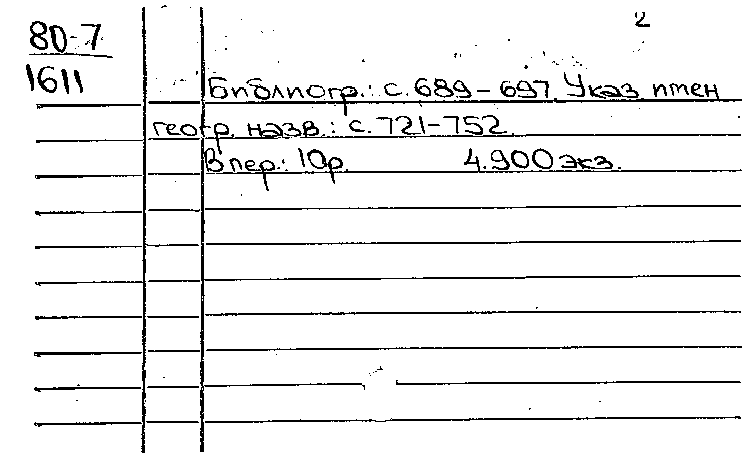 2
80-7
1611
Библиогр.: с. 689-697. Указ имен
геогр. назв.: с. 721-752
В пер.: 10р. 4.900 экз.